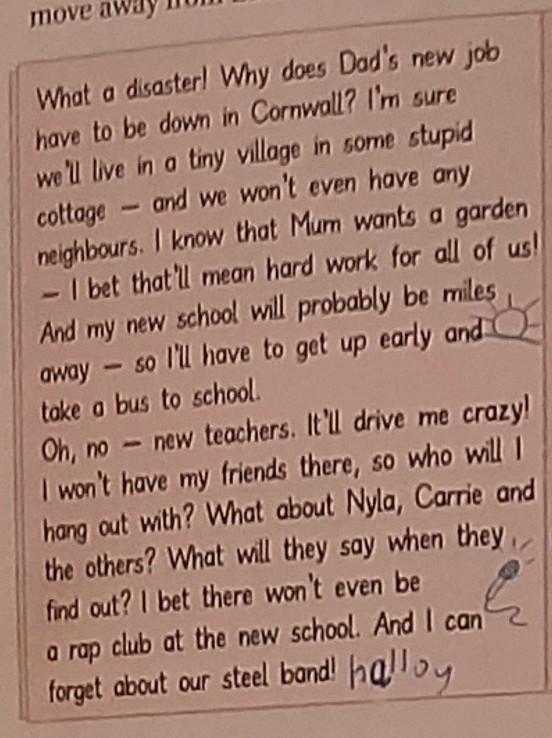 move away from
What a disaster! Why does Dad's new job
have to be down in Cornwall? I'm sure
we'll live in a tiny village in some stupid
cottage – and we won't even have any
neighbours. I know that Mum wants a garden
– I bet that'll mean hard work for all of us!
And my new school will probably be miles
away – so I'll have to get up early and
take a bus to school.
Oh, no – new teachers. It'll drive me crazy!
I won't have my friends there, so who will I
hang out with? What about Nyla, Carrie and
the others? What will they say when they
find out? I bet there won't even be
a rap club at the new school. And I can
forget about our steel band! halloy